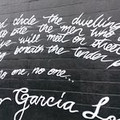 circle the dwelling
to bite the men who
will meet on street
beneath the tender
no one, no one...
García Lo